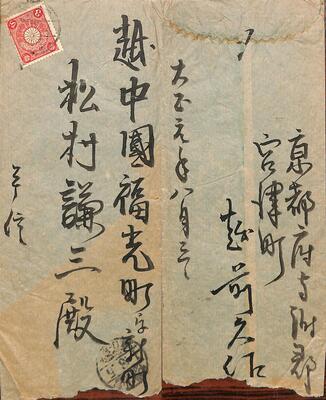 京都府与謝郡
宮津町
越前久作
大正元年八月三
越中國福光町字新町
松村謙三殿
平信